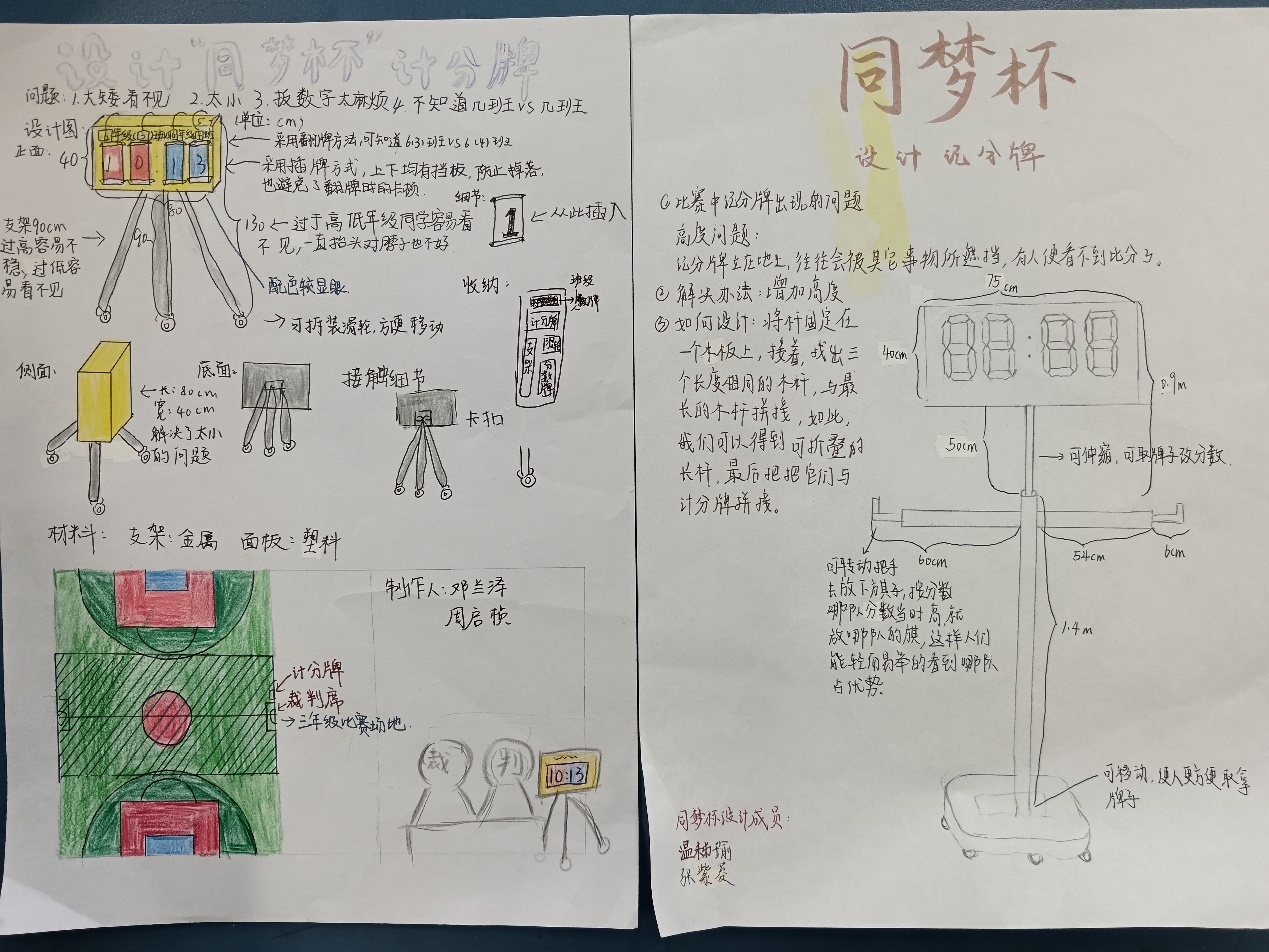 设计“同梦杯”计分牌
问题:1.太矮看不见 2.太小 3.扳数字太麻烦 4.不知道几班 vs 几班
设计图:
(单位:cm)
正面:
40
10:13
80
90
130
采用翻牌方法,可知道6(3)班 vs 6(4)班
采用插牌方式,上下均有挡板,防止掉落.
也避免了翻牌时的卡顿
细节:
1
从此插入
过于高低年级同学容易看
不见,一直抬头对脖子也不好
支架90cm
过高容易不
稳,过低容
易看不见
配色较显眼
可拆装滑轮,方便移动
收纳:
计分牌
支架
侧面:
长:80cm
宽:40cm
解决了太小
的问题
底面:
接触细节
卡扣
材料: 支架:金属 面板:塑料
制作人:邓兰泽
周启桢
计分牌
裁判席
三年级比赛场地.
裁 判
10:13
同梦杯
设计记分牌
①比赛中记分牌出现的问题
高度问题:
记分牌立在地上,往往会被其它事物所遮挡,有人便看不到比分了。
②解决办法:增加高度
③如何设计:将杆固定在
一个木板上,接着,找出三
个长度相同的木杆,与最
长的木杆拼接,如此,
我们可以得到可折叠的
长杆,最后把把它们与
计分牌拼接。
75cm
40cm
88:88
0.9m
50cm
可伸缩,可取牌子改分数.
60cm
54cm
6cm
可转动把手
去放下旗子,按分数
哪队分数当时高,就
放哪队的旗,这样人们
能轻而易举的看到哪队
占优势.
1.4m
可移动,使人更方便取拿
牌子
同梦杯设计成员:
张紫萸